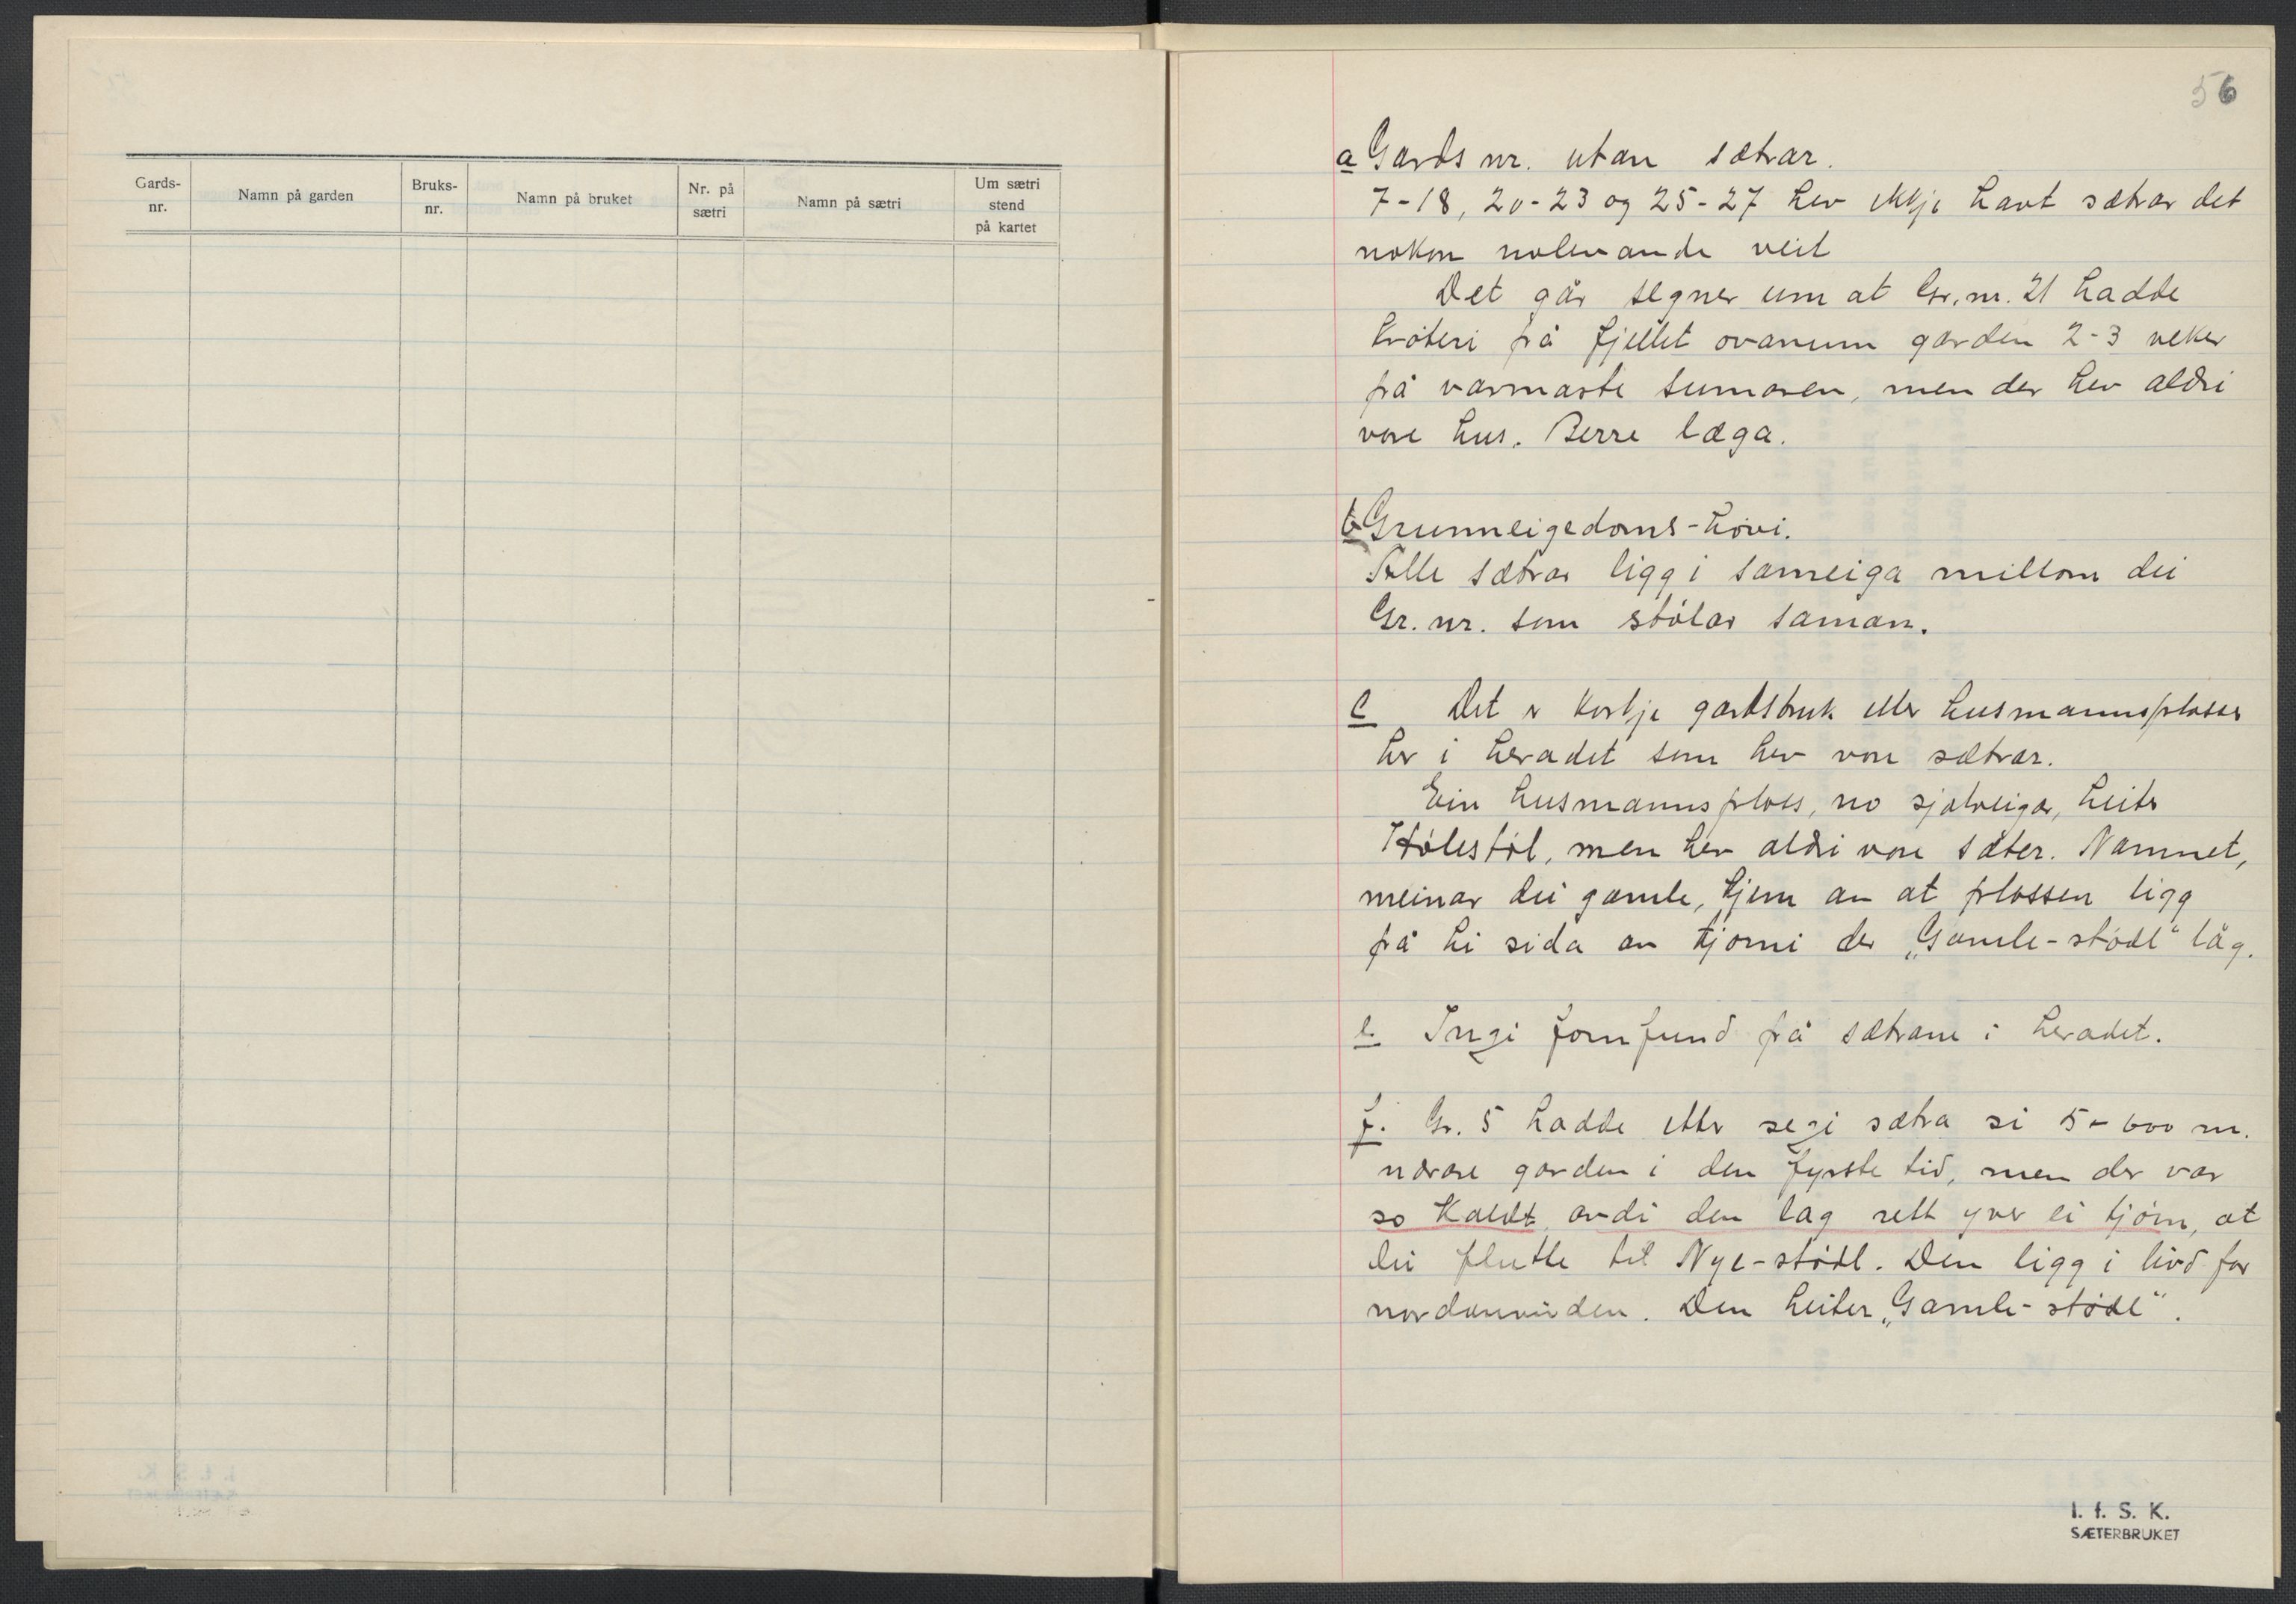 Gards-
nr.
Namn på garden
Bruks-
nr.
Namn på bruket
Nr. på
sætri
Namn på sætri
Um sætri
stend
på kartet
56
a Gards nr. utan sætrar.
7-18, 20-23 og 25-27 hev ikkje havt sætrar det
nokon nolevande veit
Det går segner um at Gr. nr. 21 hadde
krøteri på fjellet ovanum garden 2-3 veker
på varmaste sumaren, men der hev aldri
vore hus. Berre læga.
b Grunneigedoms-høvi.
Alle sætrar ligg i sameiga millom dei
Gr. nr. som stølar saman.
c Det er korkje gardsbruk eller husmannsplasser
her i heradet som hev vore sætrar.
Ein husmannsplass, no sjølveigar, heiter
Hølestøl, men hev aldri vore sæter. Namnet,
meinar dei gamle, kjem av at plassen ligg
på hi sida av tjørni der „Gamle-stødl“ låg.
e. Ingi fornfund på sætrane i heradet.
f. Gr. 5 hadde etter segi sætra si 5-600 m.
nærare garden i den fyrste tid, men der var
so kaldt avdi den låg rett yver ei tjørn, at
dei flutte til Nye-stødl. Den ligg i livd for
nordanvinden. Den heiter „Gamle-stødl“.
I. f. S. K.
SÆTERBRUKET